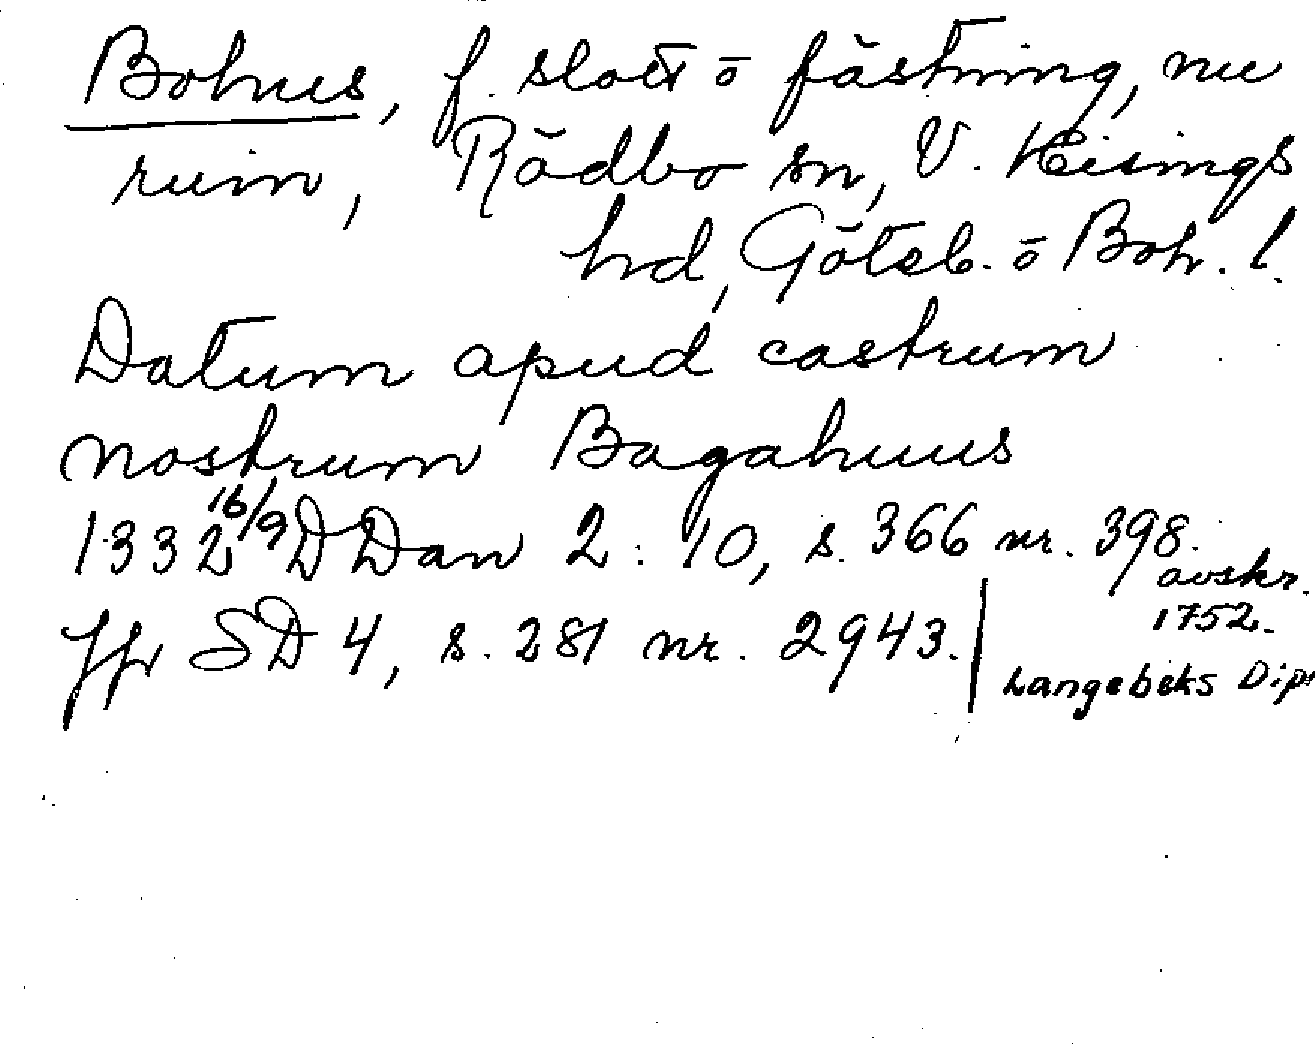 Bohus, f. slott o fästning, nu
ruin, Rödbo sn, V. Hisings
hd, Göteb. o Boh. l.
Datum apud castrum
nostrum Bagahuus
1332 16/9 DDan 2:10, s. 366 nr. 398.
avskr.
1752.
Jfr SD 4, s. 281 nr. 2943.
Langebeks Dipl